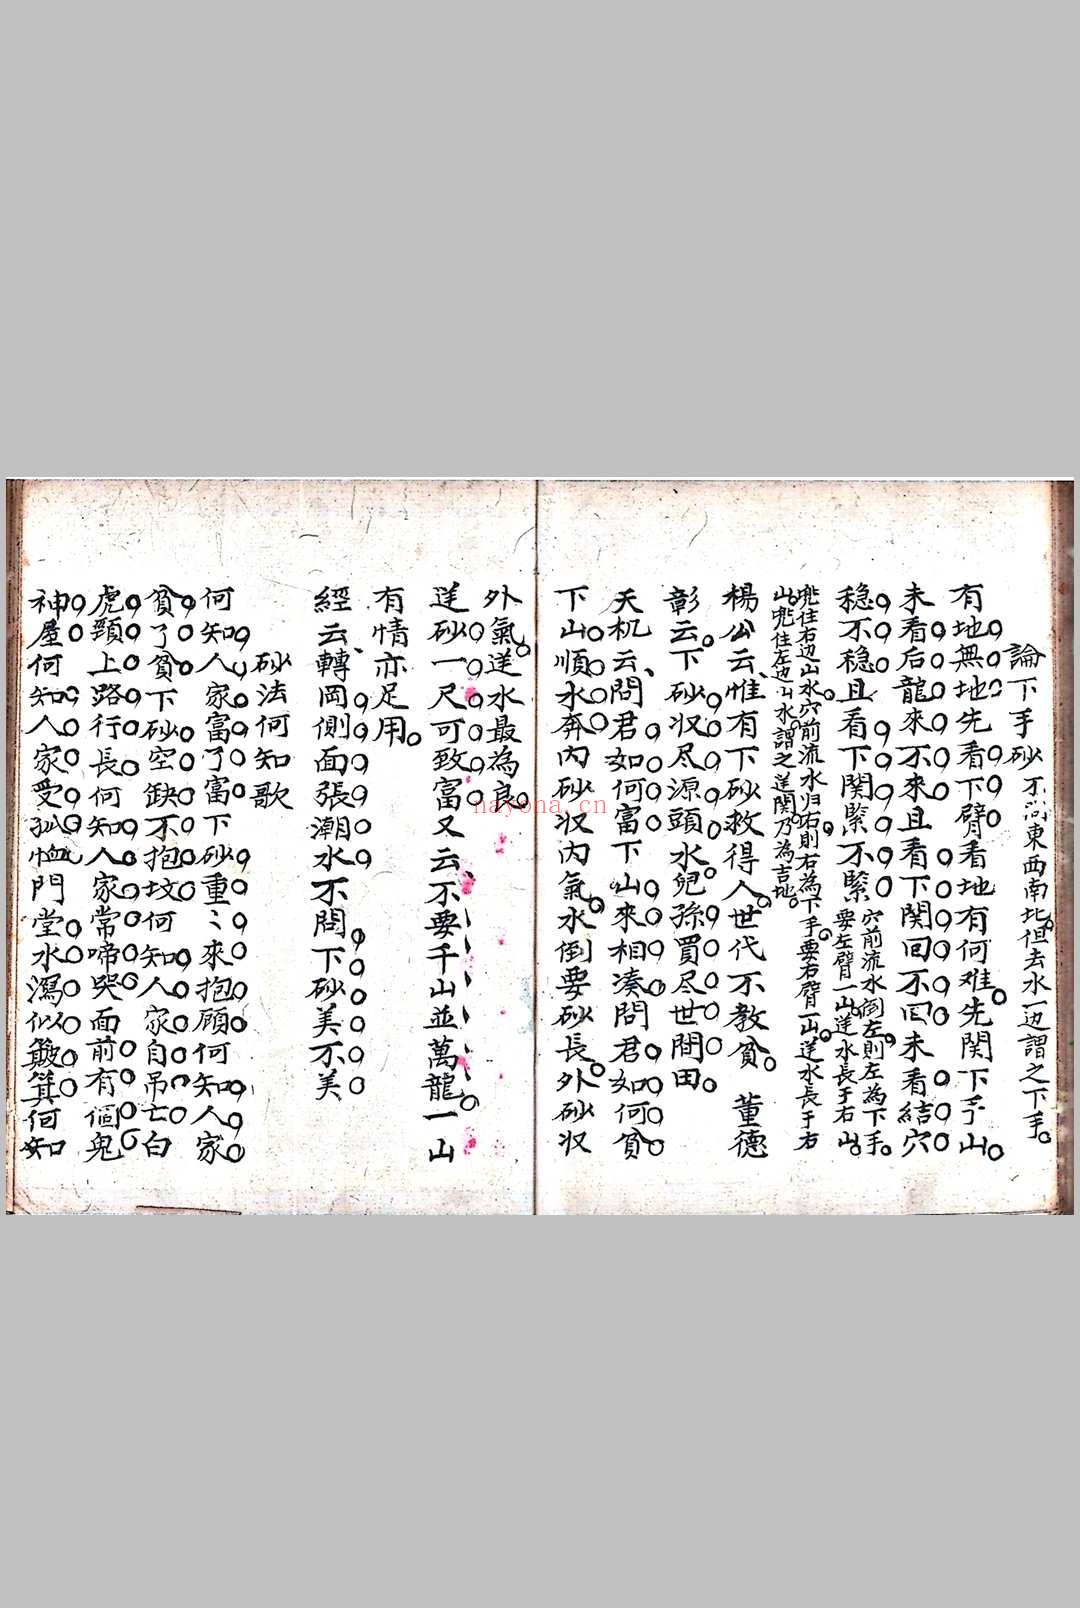 論下手砂 不問東西南北但去水一边謂之下手
有地無地先看下臂看地有何难先関下手山
未看后龍來不來且看下関回不回未看結穴
稳不稳且看下関緊不緊 穴前流水倒左則左為下手
要左臂一山逆水長于右山
兜住右边山水穴前流水归右則右為下手要右臂一山逆水長于右
山兜住左边山水謂之逆関乃為吉地
楊公云惟有下砂救得人世代不教貧 董德
彰云下砂収尽源頭水兒孫買尽世間田
天机云問君如何富下山來相湊問君如何貧
下山順水奔内砂収内氣水倒要砂長外砂収
外氣逆水最為良
逆砂一尺可致富又云不要千山並萬龍一山
有情亦足用
經云轉岡側面張潮水不問下砂美不美
砂法何知歌
何知人家富了富下砂重〻來抱顾何知人家
貧了貧下砂空缺不抱坟何知人家自吊亡白
虎頸上路行長何知人家常啼哭面前有個鬼
神屋何知人家受孤恤門堂水瀉似簸箕何知
nayona.cn